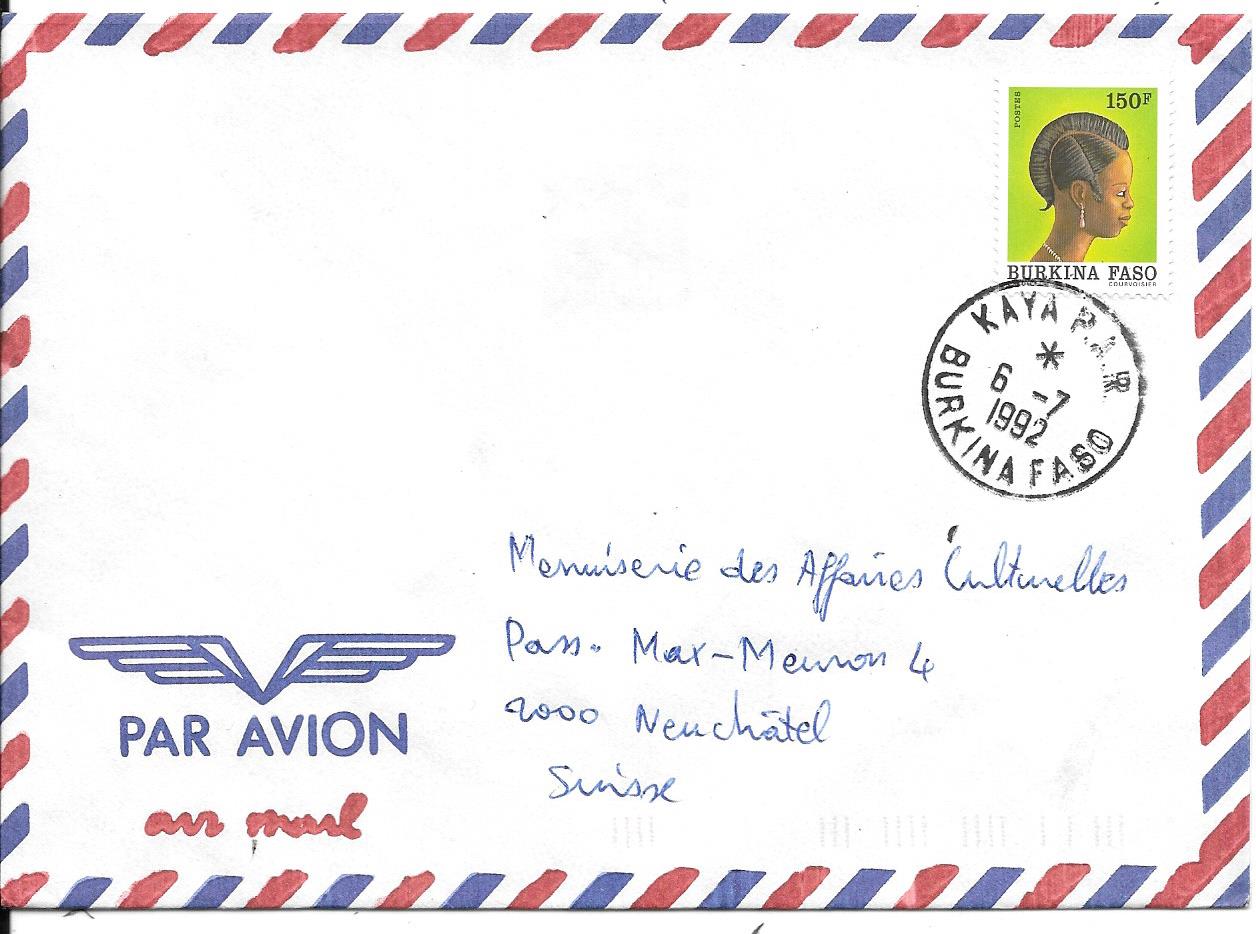 POSTES
150F
BURKINA FASO
COURVOISIER
KAYA P.A.R.
*
6 -7
1992
BURKINA FASO
Menuiserie des Affaires Culturelles
Pass. Max-Meuron 4
2000 Neuchâtel
Suisse
PAR AVION
air mail